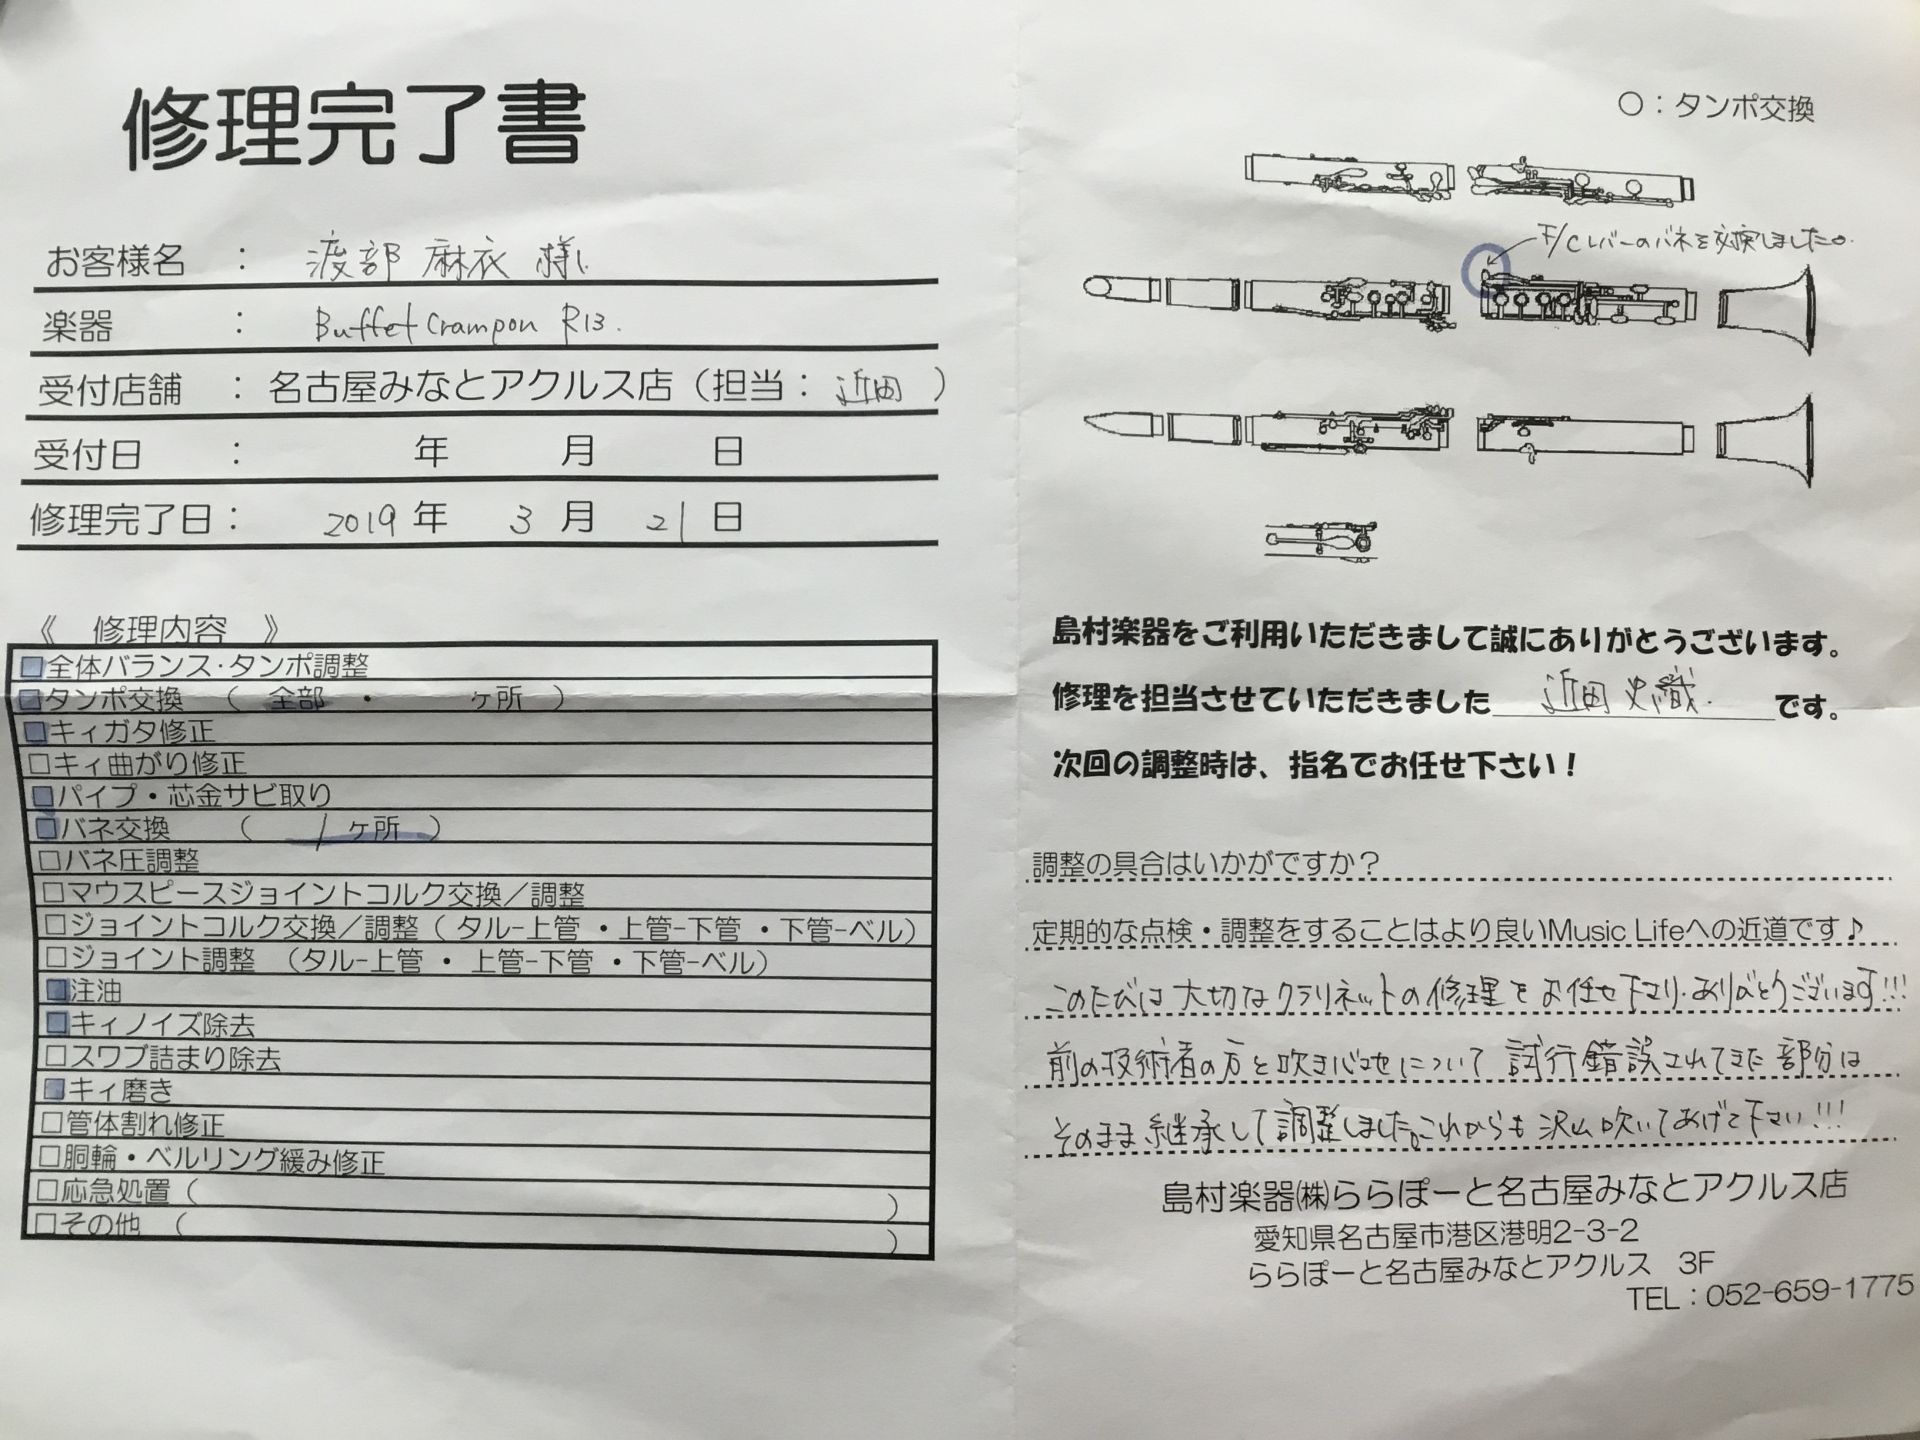 修理完了書
お客様名 : 渡部 麻衣 様
楽器 : Buffet Crampon R13.
受付店舗 : 名古屋みなとアクルス店（担当：近田）
受付日 : 年 月 日
修理完了日： 2019 年 3 月 21 日
《 修理内容 》
■全体バランス・タンポ調整
■タンポ交換 （ 全部 ・ ヶ所 ）
■キィガタ修正
□キィ曲がり修正
■パイプ・芯金サビ取り
■バネ交換 （ 1 ヶ所 ）
□バネ圧調整
□マウスピースジョイントコルク交換／調整
□ジョイントコルク交換／調整（ タル-上管 ・上管-下管 ・下管-ベル）
□ジョイント調整 （タル-上管 ・ 上管-下管 ・下管-ベル）
■注油
■キィノイズ除去
□スワブ詰まり除去
■キィ磨き
□管体割れ修正
□胴輪・ベルリング緩み修正
□応急処置（ ）
□その他 （ ）
〇：タンポ交換
F/Cレバーのバネを交換しました。
島村楽器をご利用いただきまして誠にありがとうございます。
修理を担当させていただきました 近田 史織. です。
次回の調整時は、指名でお任せ下さい！
調整の具合はいかがですか？
定期的な点検・調整をすることはより良いMusic Lifeへの近道です♪
このたびは大切なクラリネットの修理をお任せ下さり、ありがとうございます!!!
前の技術者の方と吹き心地について試行錯誤されてきた部分は
そのまま継承して調整しました。これからも沢山吹いてあげて下さい!!!
島村楽器㈱ららぽーと名古屋みなとアクルス店
愛知県名古屋市港区港明2-3-2
ららぽーと名古屋みなとアクルス 3F
TEL：052-659-1775